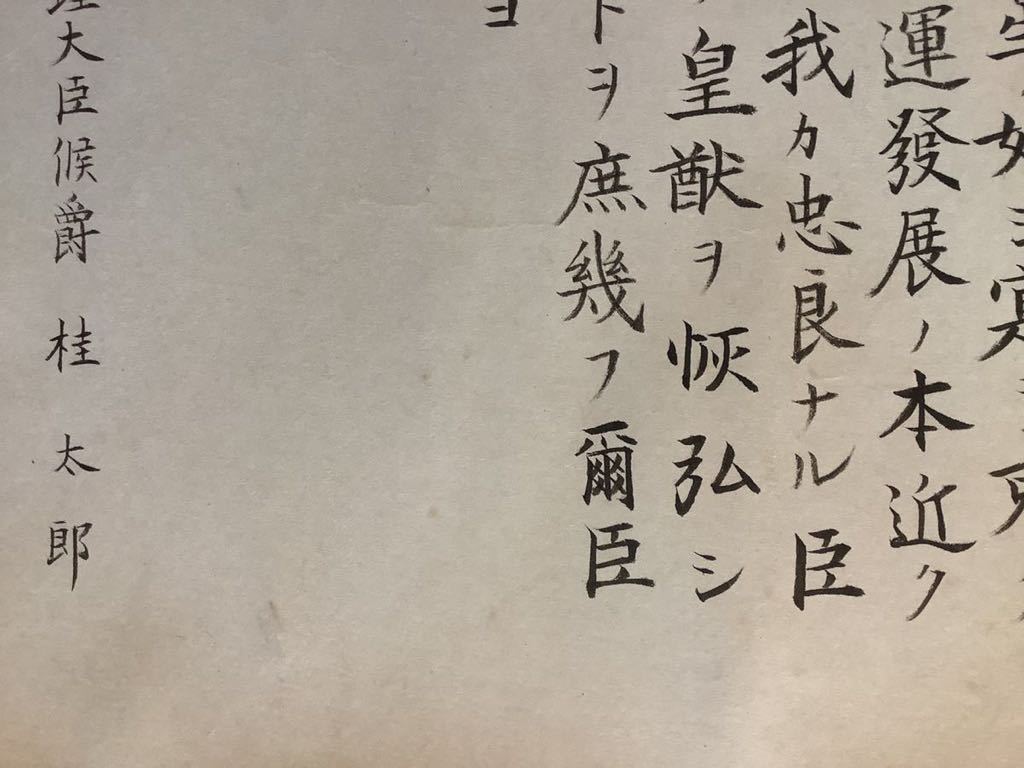 如シ寔ニ克
運發展ノ本近ク
我カ忠良ナル臣
ノ皇猷ヲ恢弘シ
トヲ庶幾フ爾臣
ヨ
理大臣候爵 桂 太郎